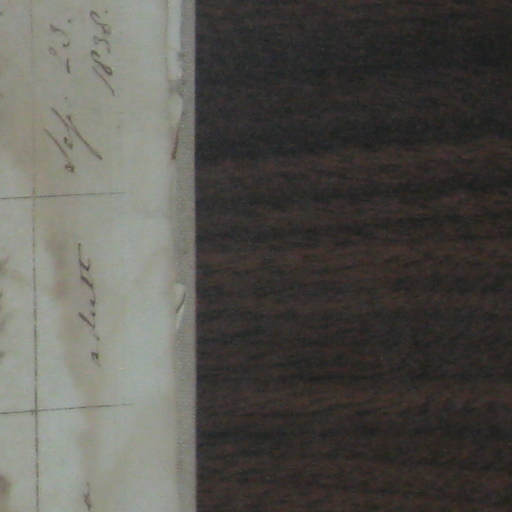 adult
Sep. 23.
1838.